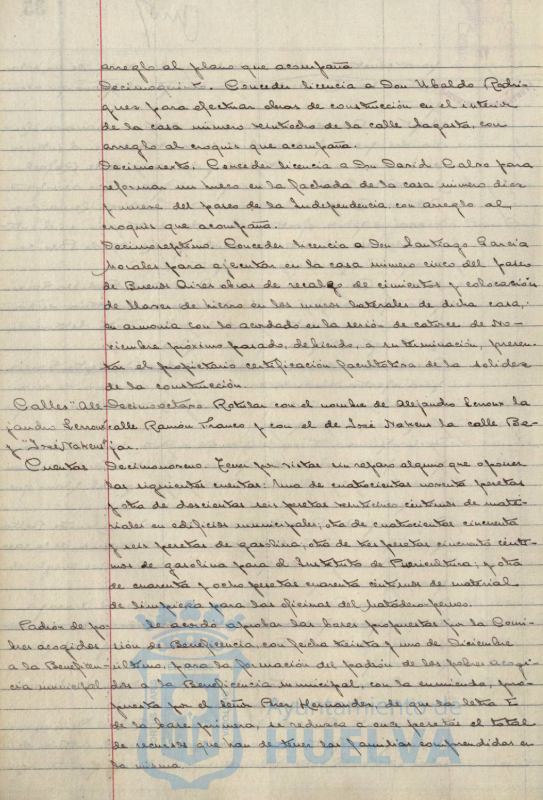 arreglo al plano que acompaña
Decimoquinto. Conceder licencia a Don Ubaldo Rodri-
guez para efectuar obras de construcción en el interior
de la casa número veintiocho de la calle Sagasta, con
arreglo al croquis que acompaña.
Decimosexto. Conceder licencia a Don David Calvo para
reformar un hueco en la fachada de la casa número diez
y nueve del paseo de la Independencia, con arreglo al
croquis que acompaña.
Decimoseptimo. Conceder licencia a Don Santiago García
Morales para ejecutar en la casa número cinco del paseo
de Buenos Aires obras de recalgo de cimientos y colocación
de llaves de hierro en los muros laterales de dicha casa,
en armonia con lo acordado en la sesión de catorce de No-
viembre próximo pasado, debiendo, a su terminación, presen-
tar el propietario certificación facultativa de la solidez
de la construcción.
Calles "Ale-
jandro Lerroux"
y "José Nakens"
Decimoctavo Rotular con el nombre de Alejandro Lerroux la
calle Ramón Franco y con el de José Nakens la calle Be-
jar.
Cuentas
Decimonoveno. Tener por vistas sin reparo alguno que oponer
las siguientes cuentas: Una de cuatrocientas noventa pesetas
y otra de doscientas seis pesetas veinticinco céntimos de mate-
riales en edificios municipales; otra de cuatrocientas cincuenta
y seis pesetas de gasolina; otra de tres pesetas cincuenta cénti-
mos de gasolina para el Instituto de Puericultura; y otra
de cuarenta y ocho pesetas cuarenta céntimos de material
de limpieza para las oficinas del matadero
Padrón de po-
bres acogidos
a la Beneficen-
cia municipal
Se acordó aprobar las bases propuestas por la Comi-
sión de Beneficencia, con fecha treinta y uno de Diciembre
último, para la formación del padrón de los pobres acogi-
dos a la Beneficencia municipal, con la enmienda, pro-
puesta por el señor Pérez Hernandez, de que la letra E
de la base primera, se reduzca a once pesetas el total
de recursos que han de tener las familias comprendidas en
la misma.
Ayuntamiento de
HUELVA